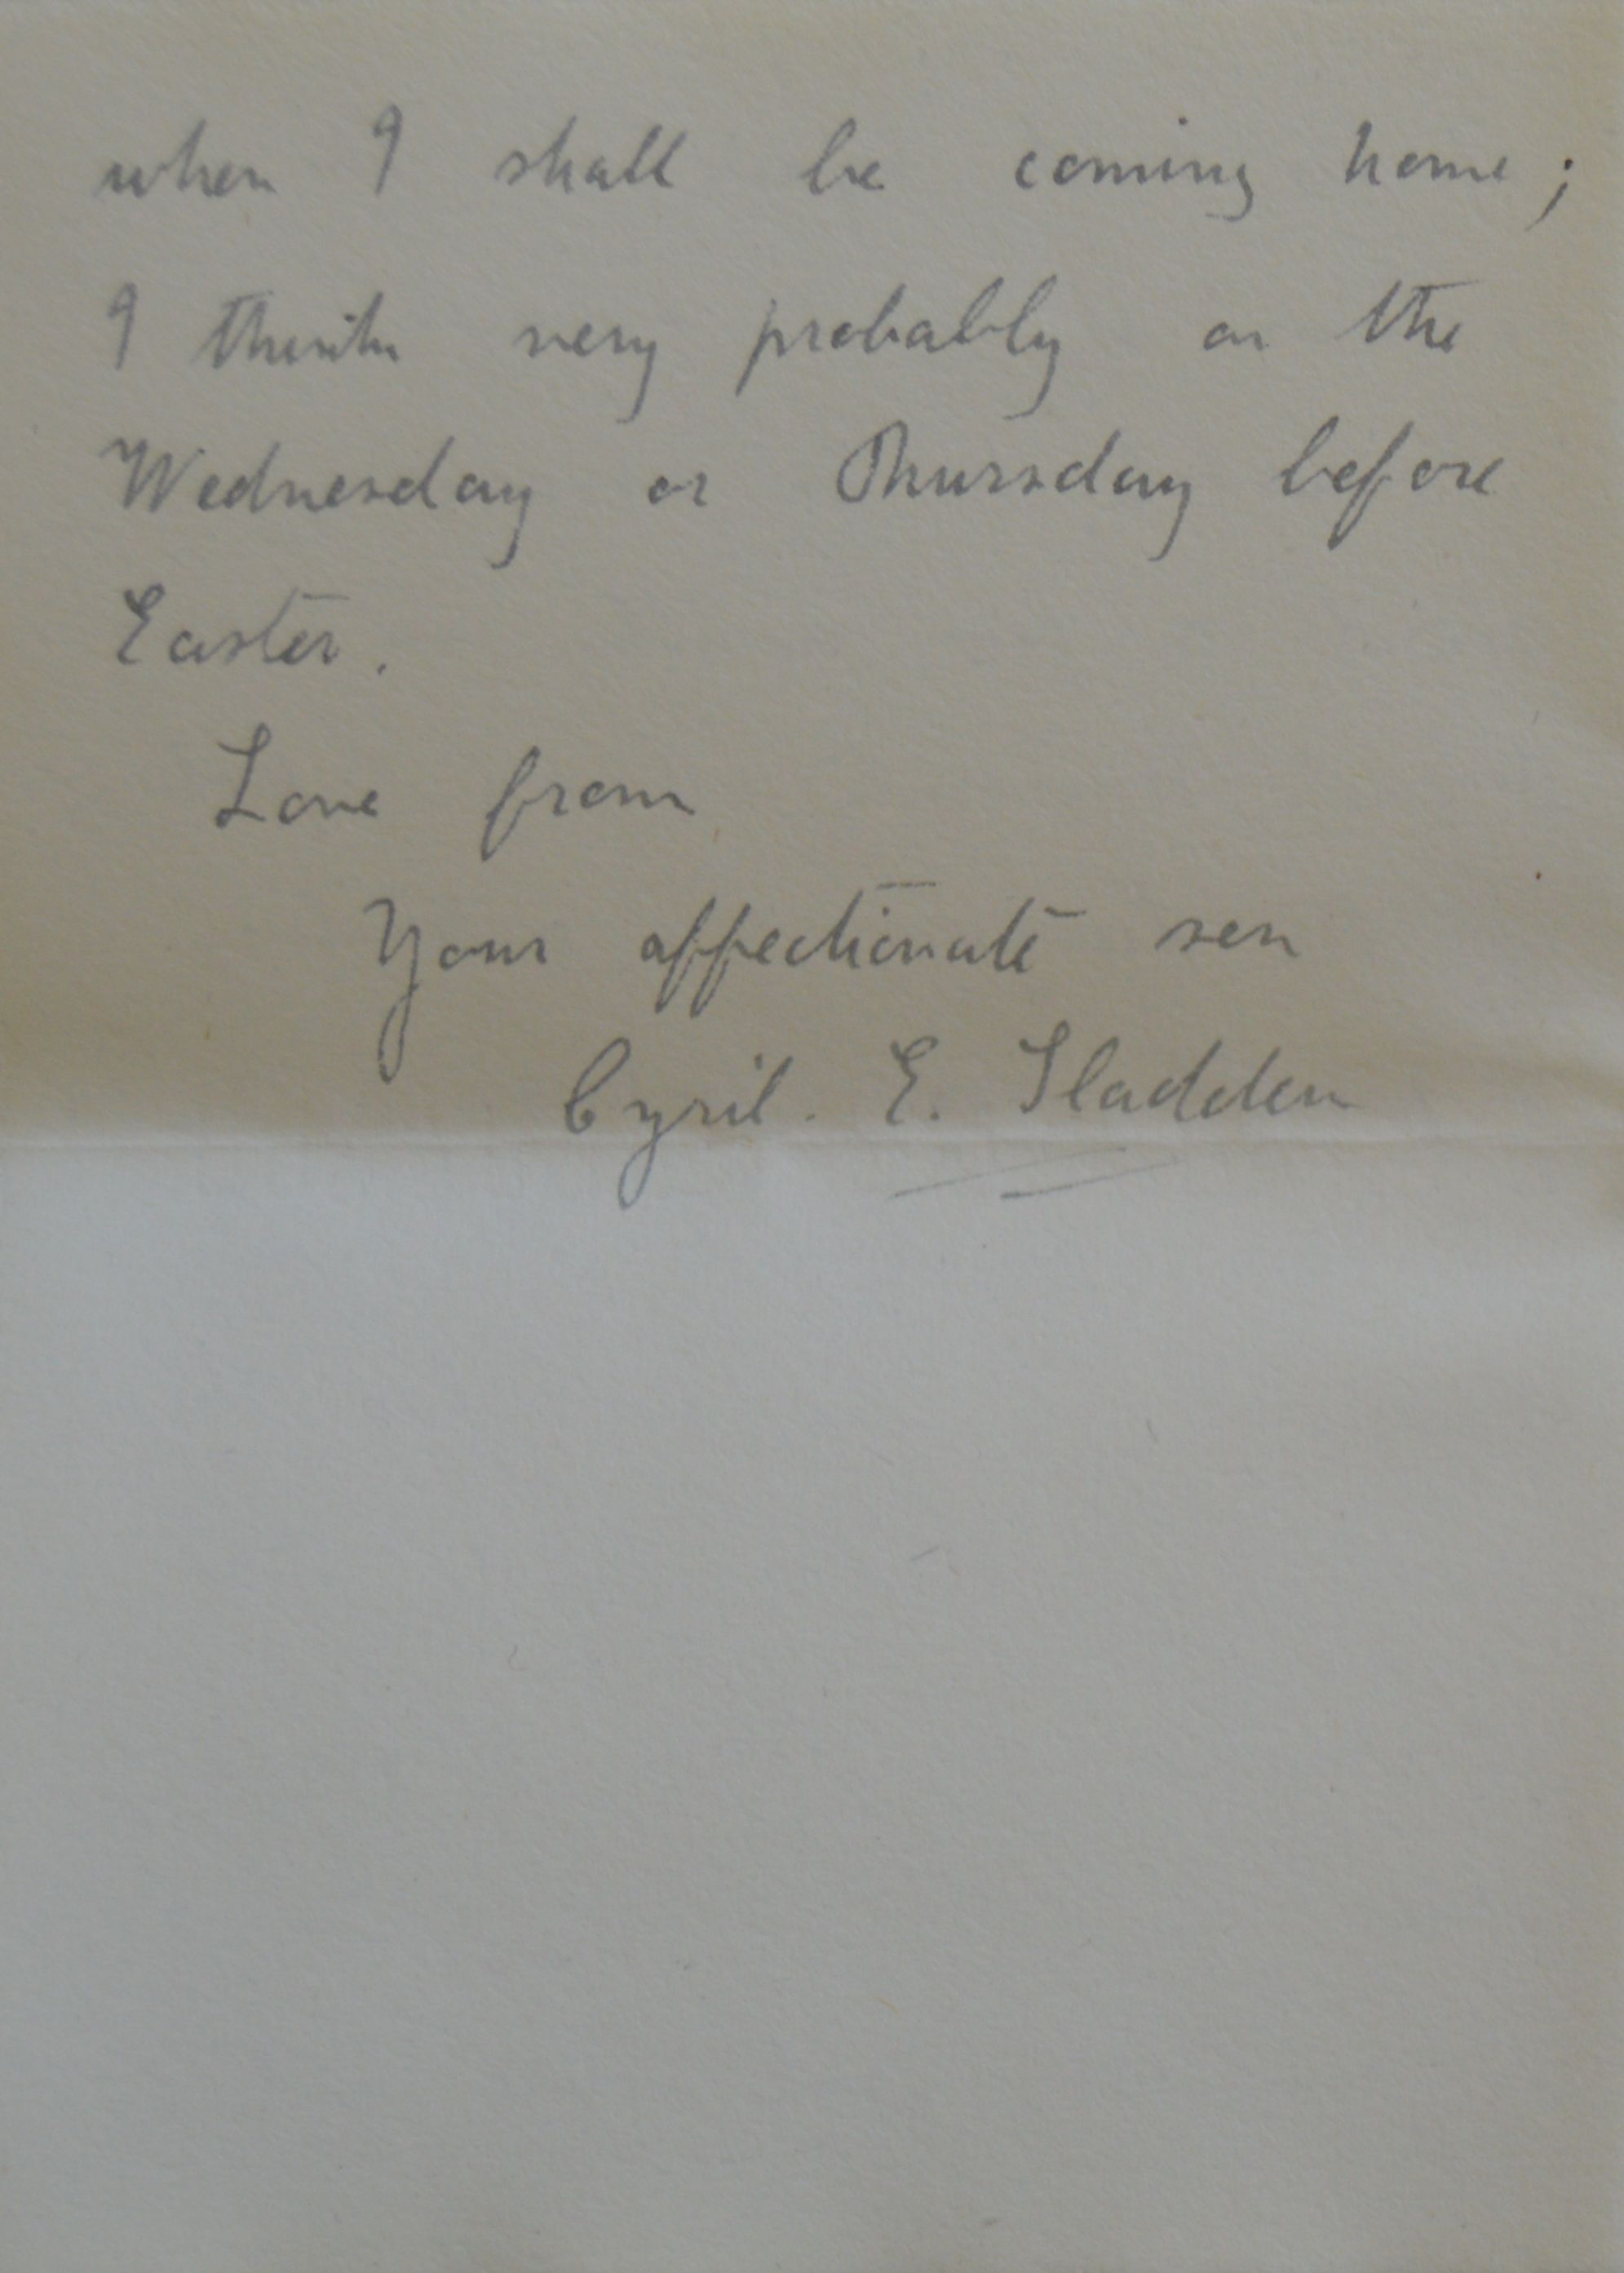 when I shall be coming home;
I think very probably on the
Wednesday or Thursday before
Easter.
Love from
Your affectionate son
Cyril. E. Sladden